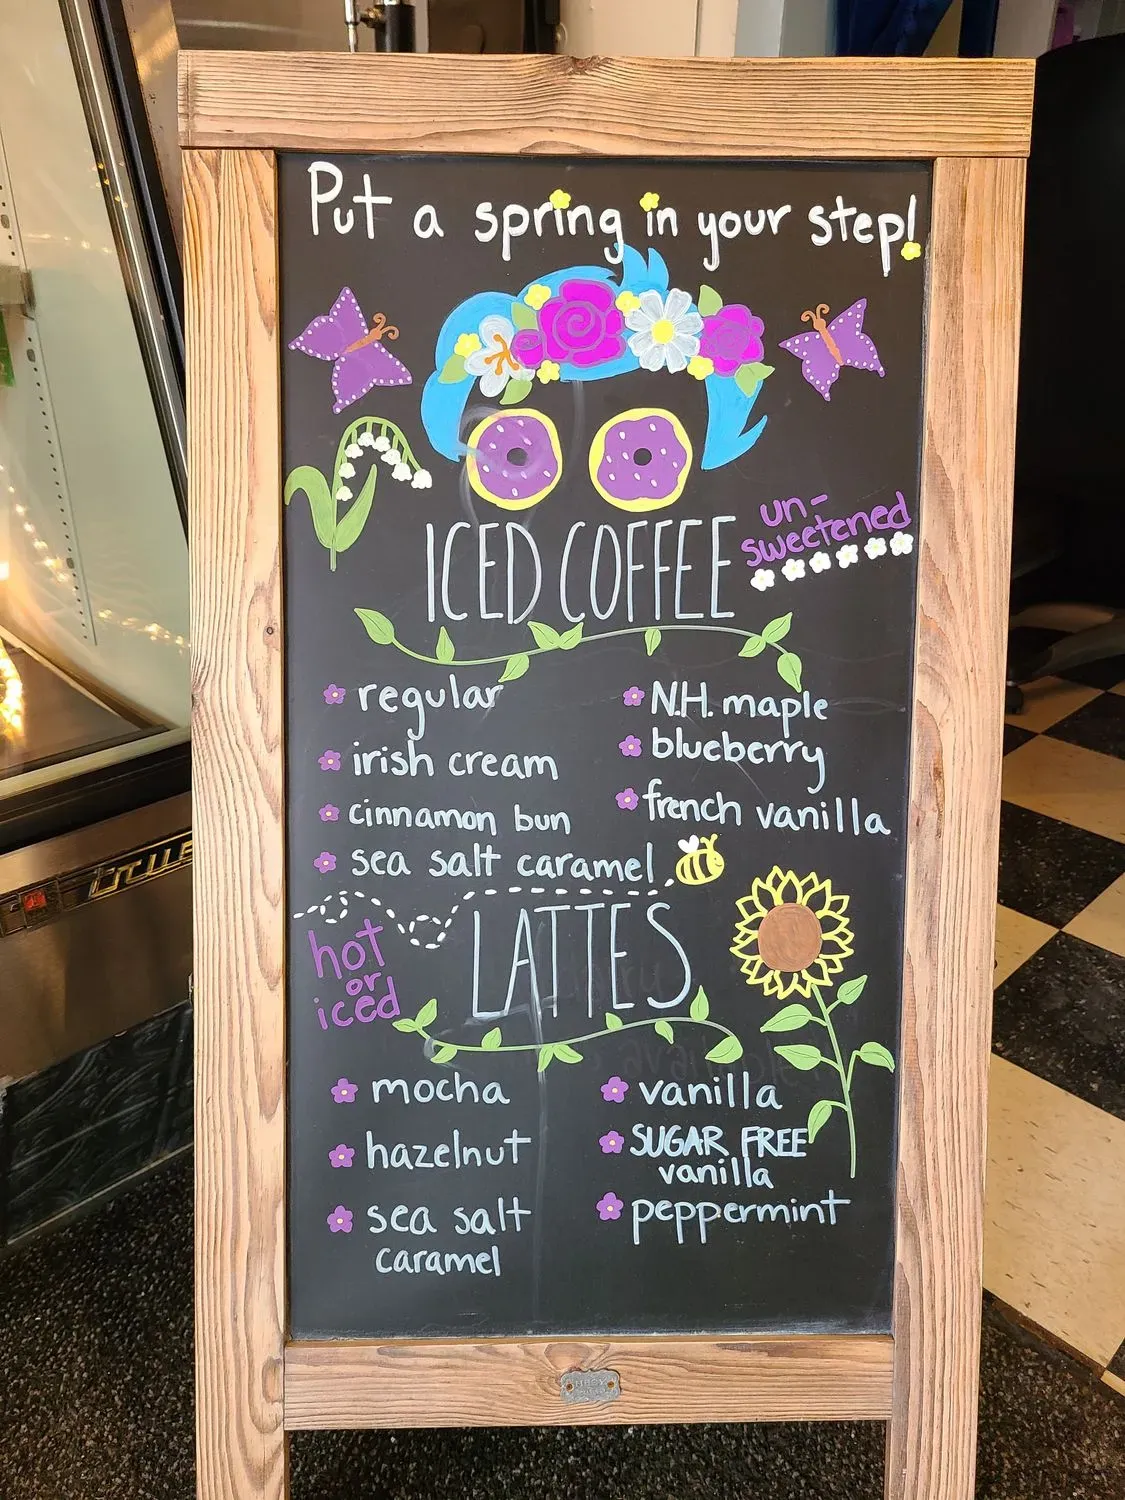 Put a spring in your step!
ICED COFFEE
un-
sweetened
regular
irish cream
cinnamon bun
sea salt caramel
N.H. maple
blueberry
french vanilla
LATTES
hot
or
iced
mocha
hazelnut
sea salt
caramel
vanilla
SUGAR FREE
vanilla
peppermint